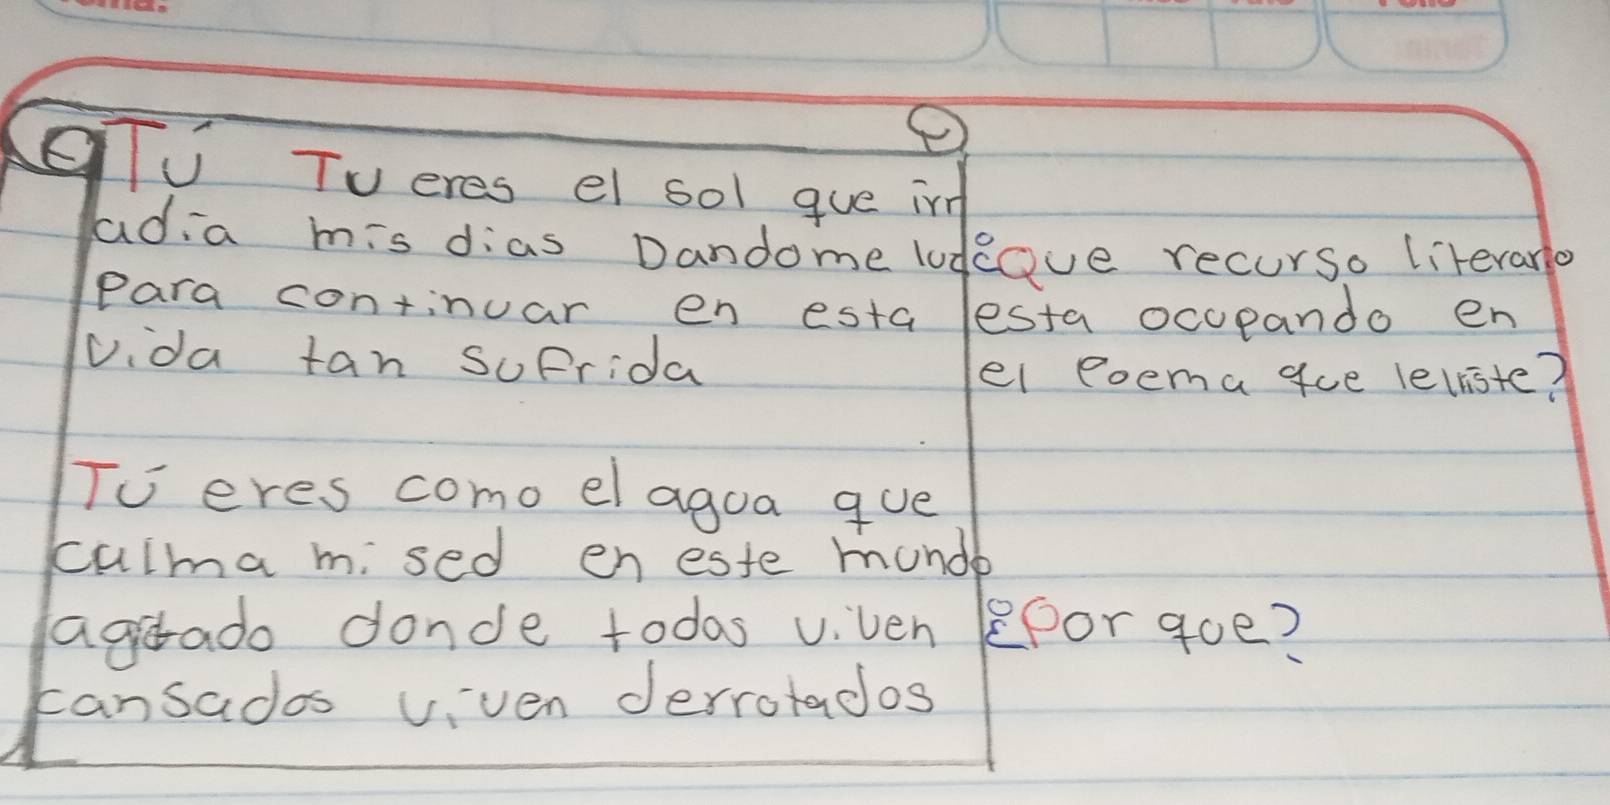 Tú Tu eres el sol que irr
adia mis dias Dandome luz
para continuar en esta
vida tan sufrida
Tú eres como el agua que
calma mi sed en este mundo
agitado donde todos viven
cansados viven derrotados
¿Que recurso literario
esta ocupando en
el poema que leiste?
¿Por que?